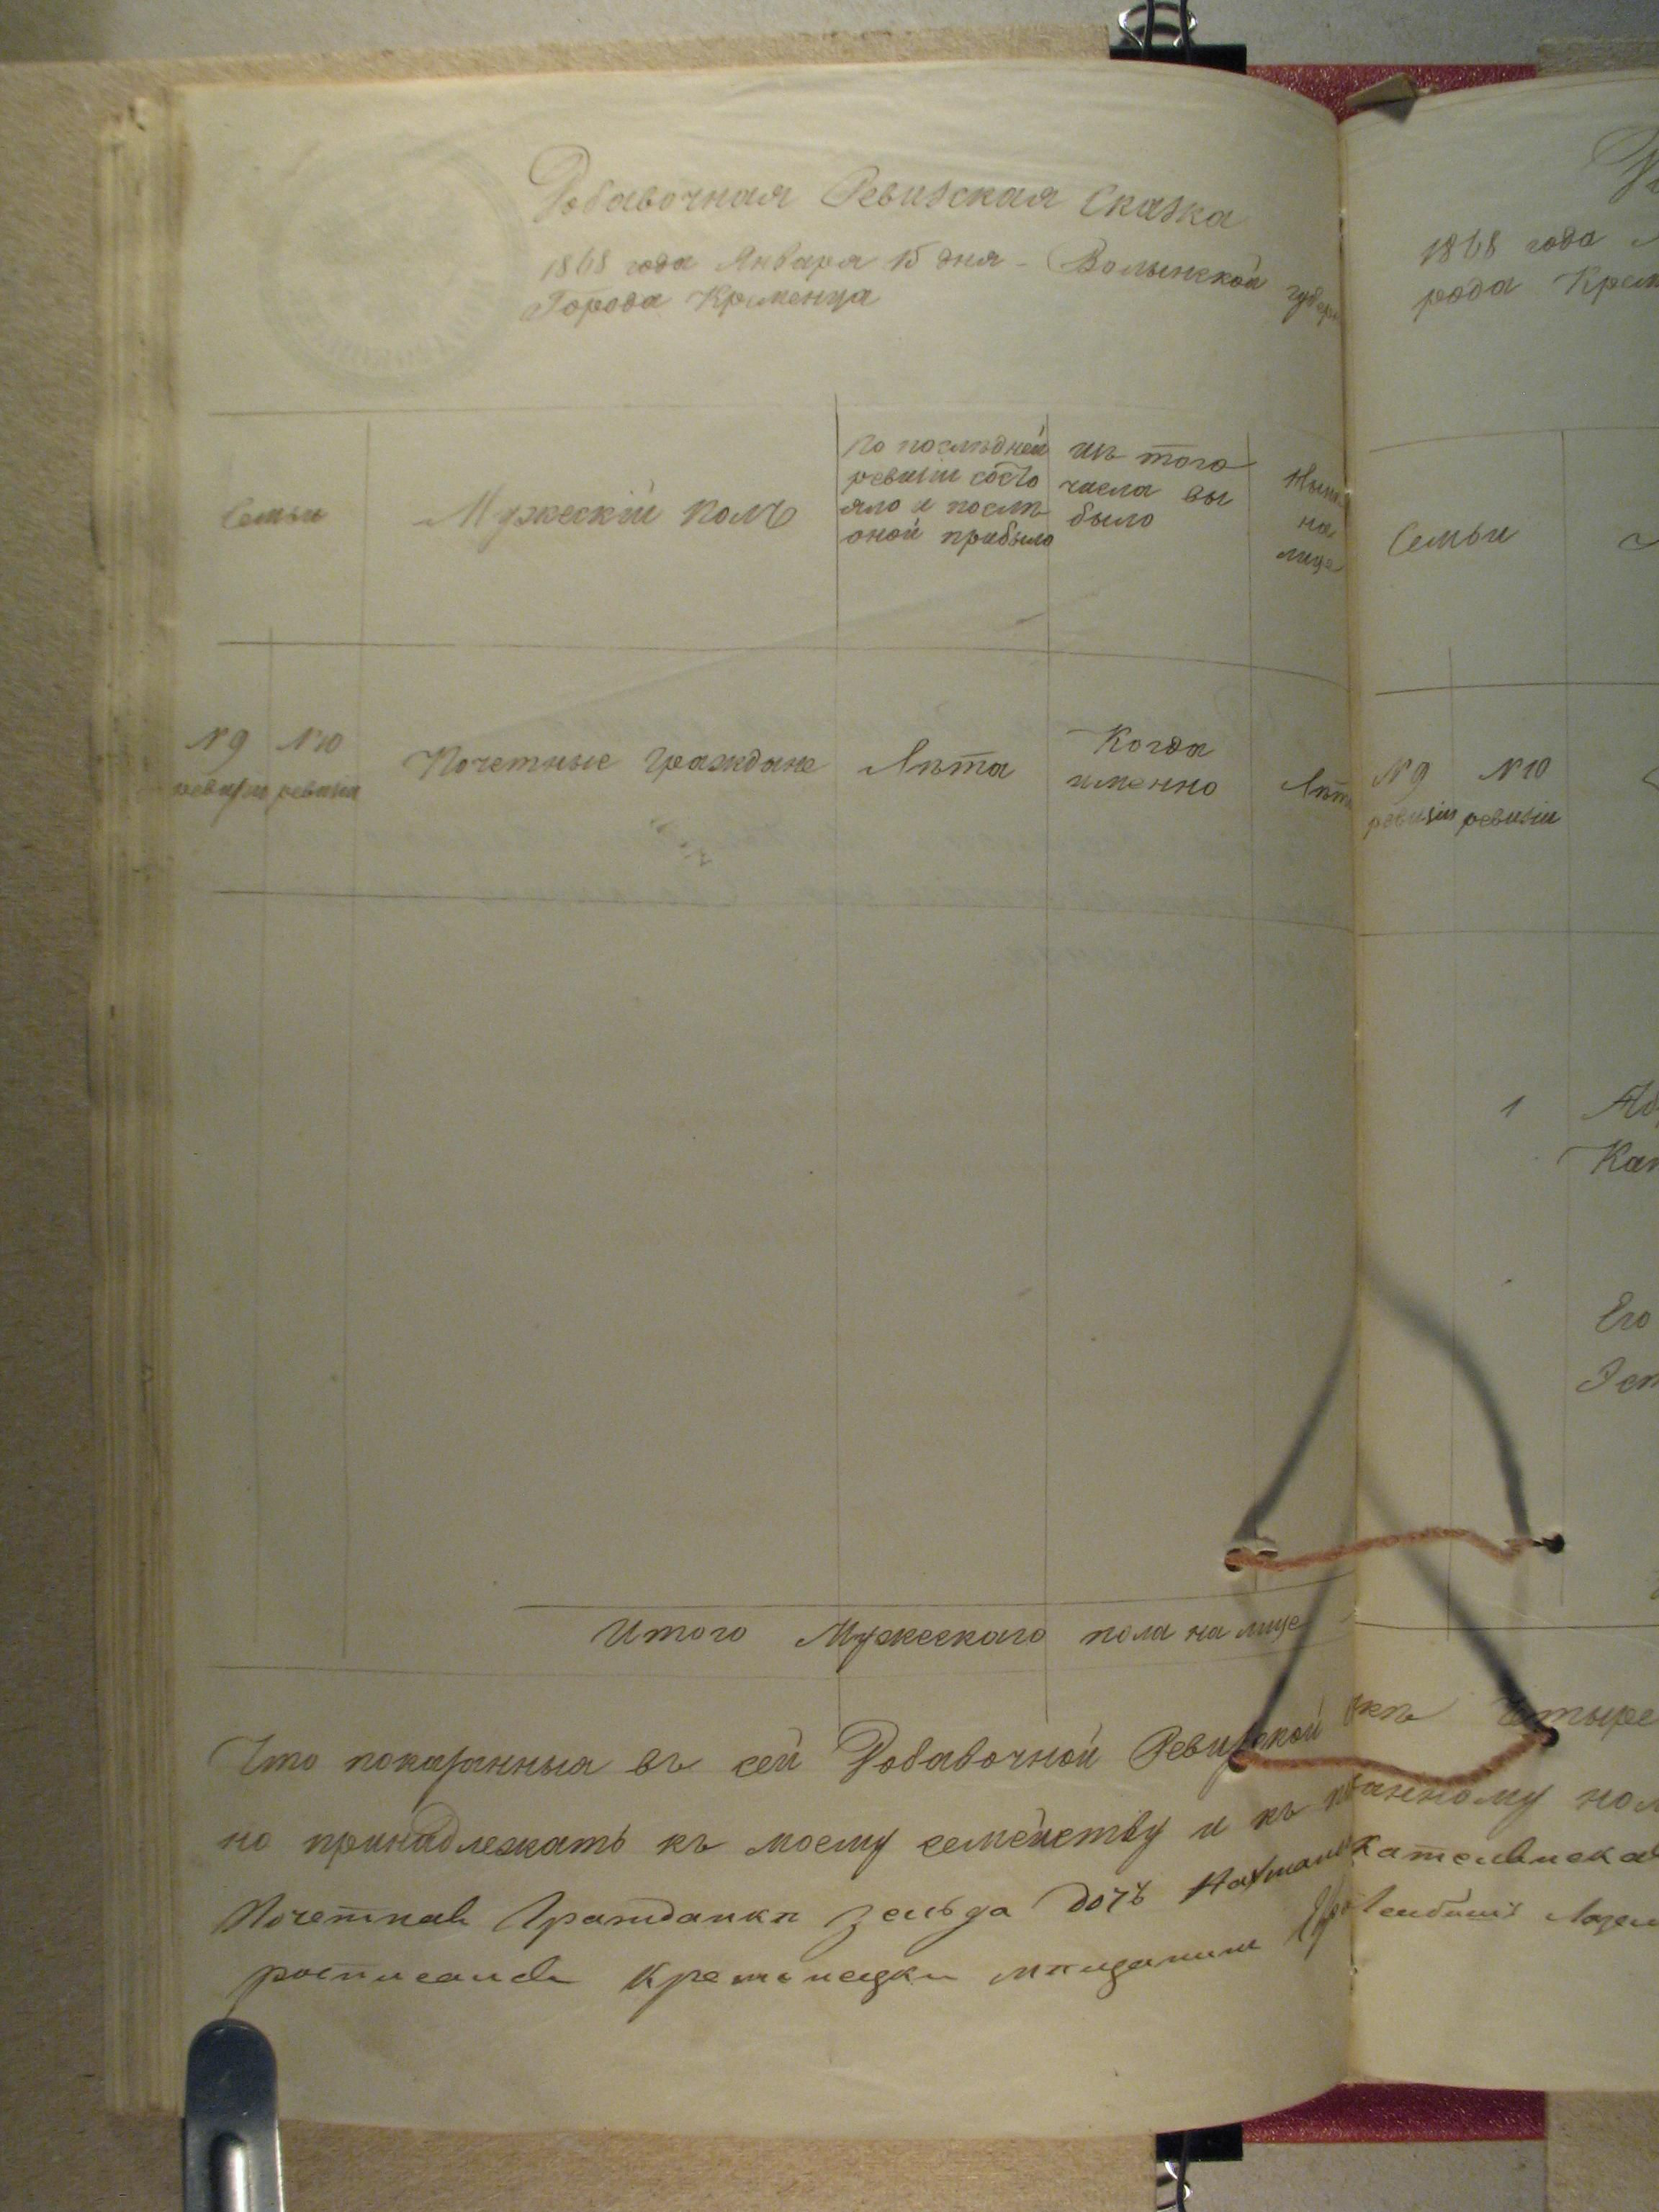 Добавочная Ревизская Сказка
1868 года Января 15 дня - Волынской губер
Города Кременца
Семьи
Мужескій полъ
по послѣдней
ревизіи состо
яло и послѣ
оной прибыло
изъ того
числа вы
было
Нынѣ
на
лице
№ 9
ревизіи
№ 10
ревизіи
Почетные Граждане
Лѣта
Когда
именно
Лѣт
Итого Мужескаго пола на лице
Что показанныя въ сей Добавочной Ревизской
но принадлежать къ моему семейству и къ
Почетная Гражданка Зельда дочь Нахмана
росписался Кременецки мещанин
1868 года
рода Крем
Семьи
№ 9
ревизіи
№ 10
ревизіи
1
Кат
Его
четыре
занному